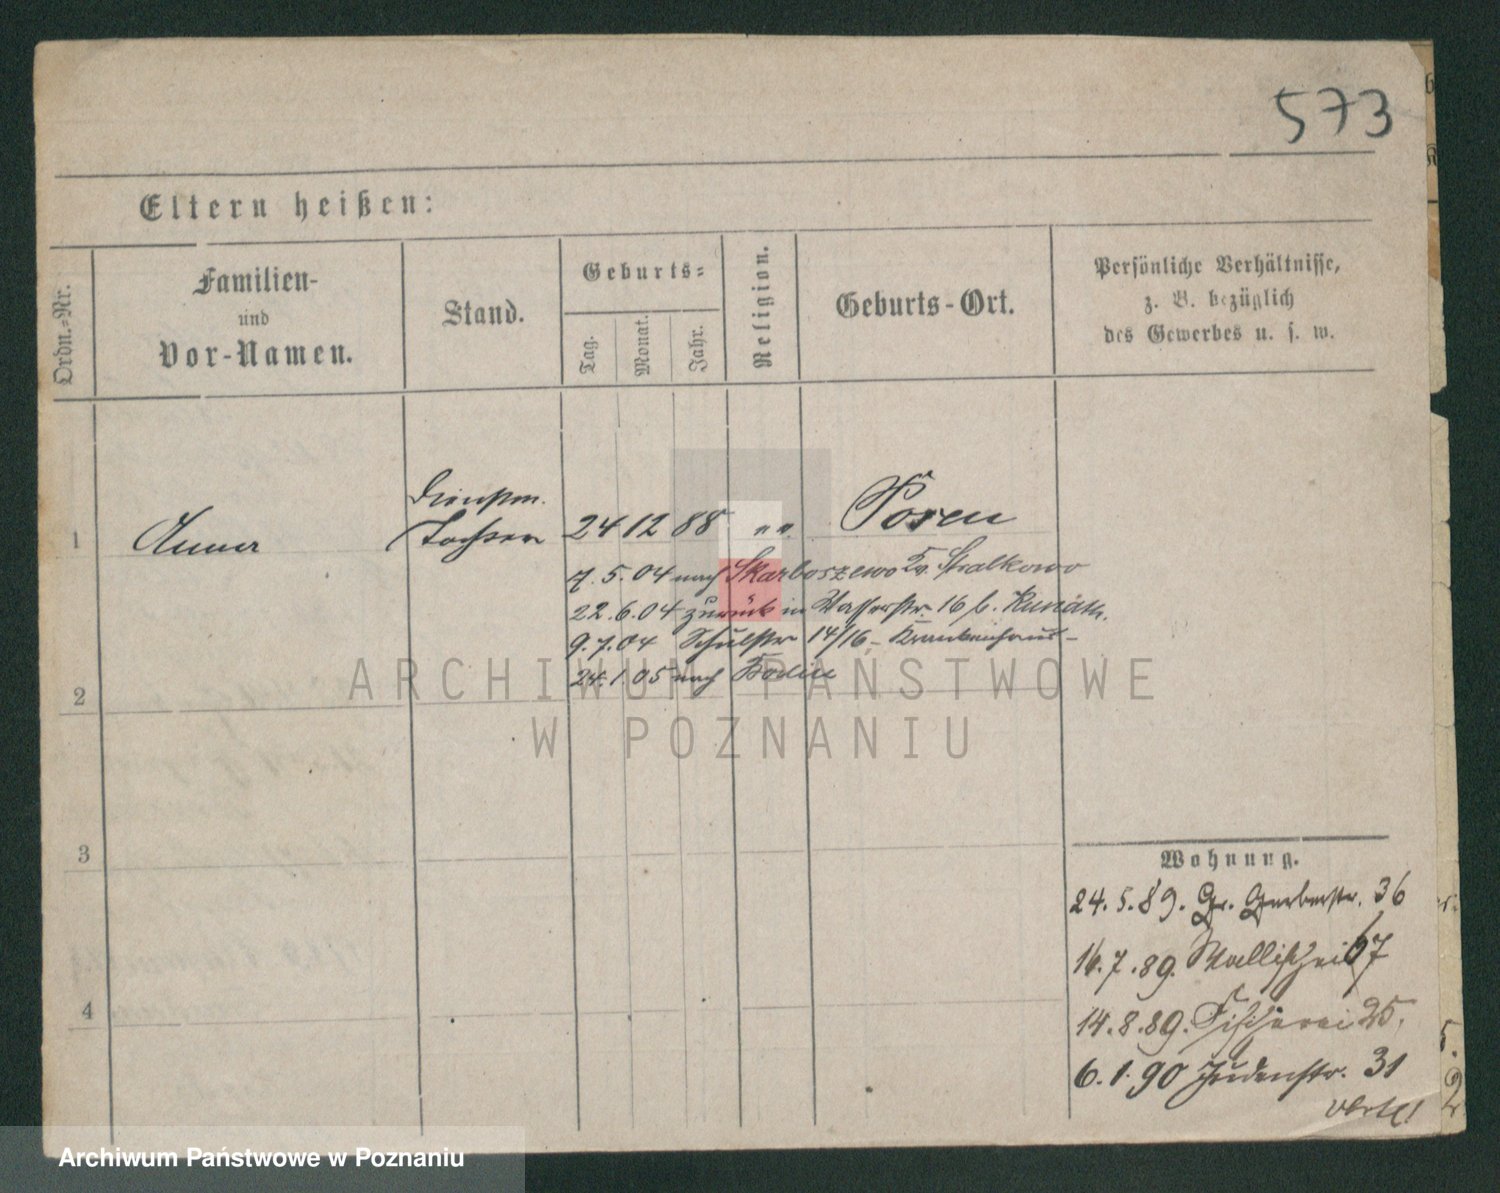 573
Eltern heißen:
Ordn.-Nr.
Familien-
und
Vor-Namen.
Stand.
Geburts-
Tag.
Monat.
Jahr.
Religion.
Geburts-Ort.
Persönliche Verhältnisse,
z. B. bezüglich
des Gewerbes u. s. w.
1
Anna
Dienstm.
Tochter
24 12 88 " " Posen
7. 5. 04 nach Skarboszewo Stralkowo
22. 6. 04 zurück in Wasserstr. 16 b.
9. 7. 04 Schulstr 14/16 - Krankenhaus -
24. 1. 05 nach
ARCHIWUM PAŃSTWOWE
W POZNANIU
2
3
4
Wohnung.
24. 5. 89. Gr. Gerberstr. 36
16. 7. 89. Wallischei 67
14. 8. 89. Fischerei 25.
6. 1. 90 Judenstr. 31
Archiwum Państwowe w Poznaniu